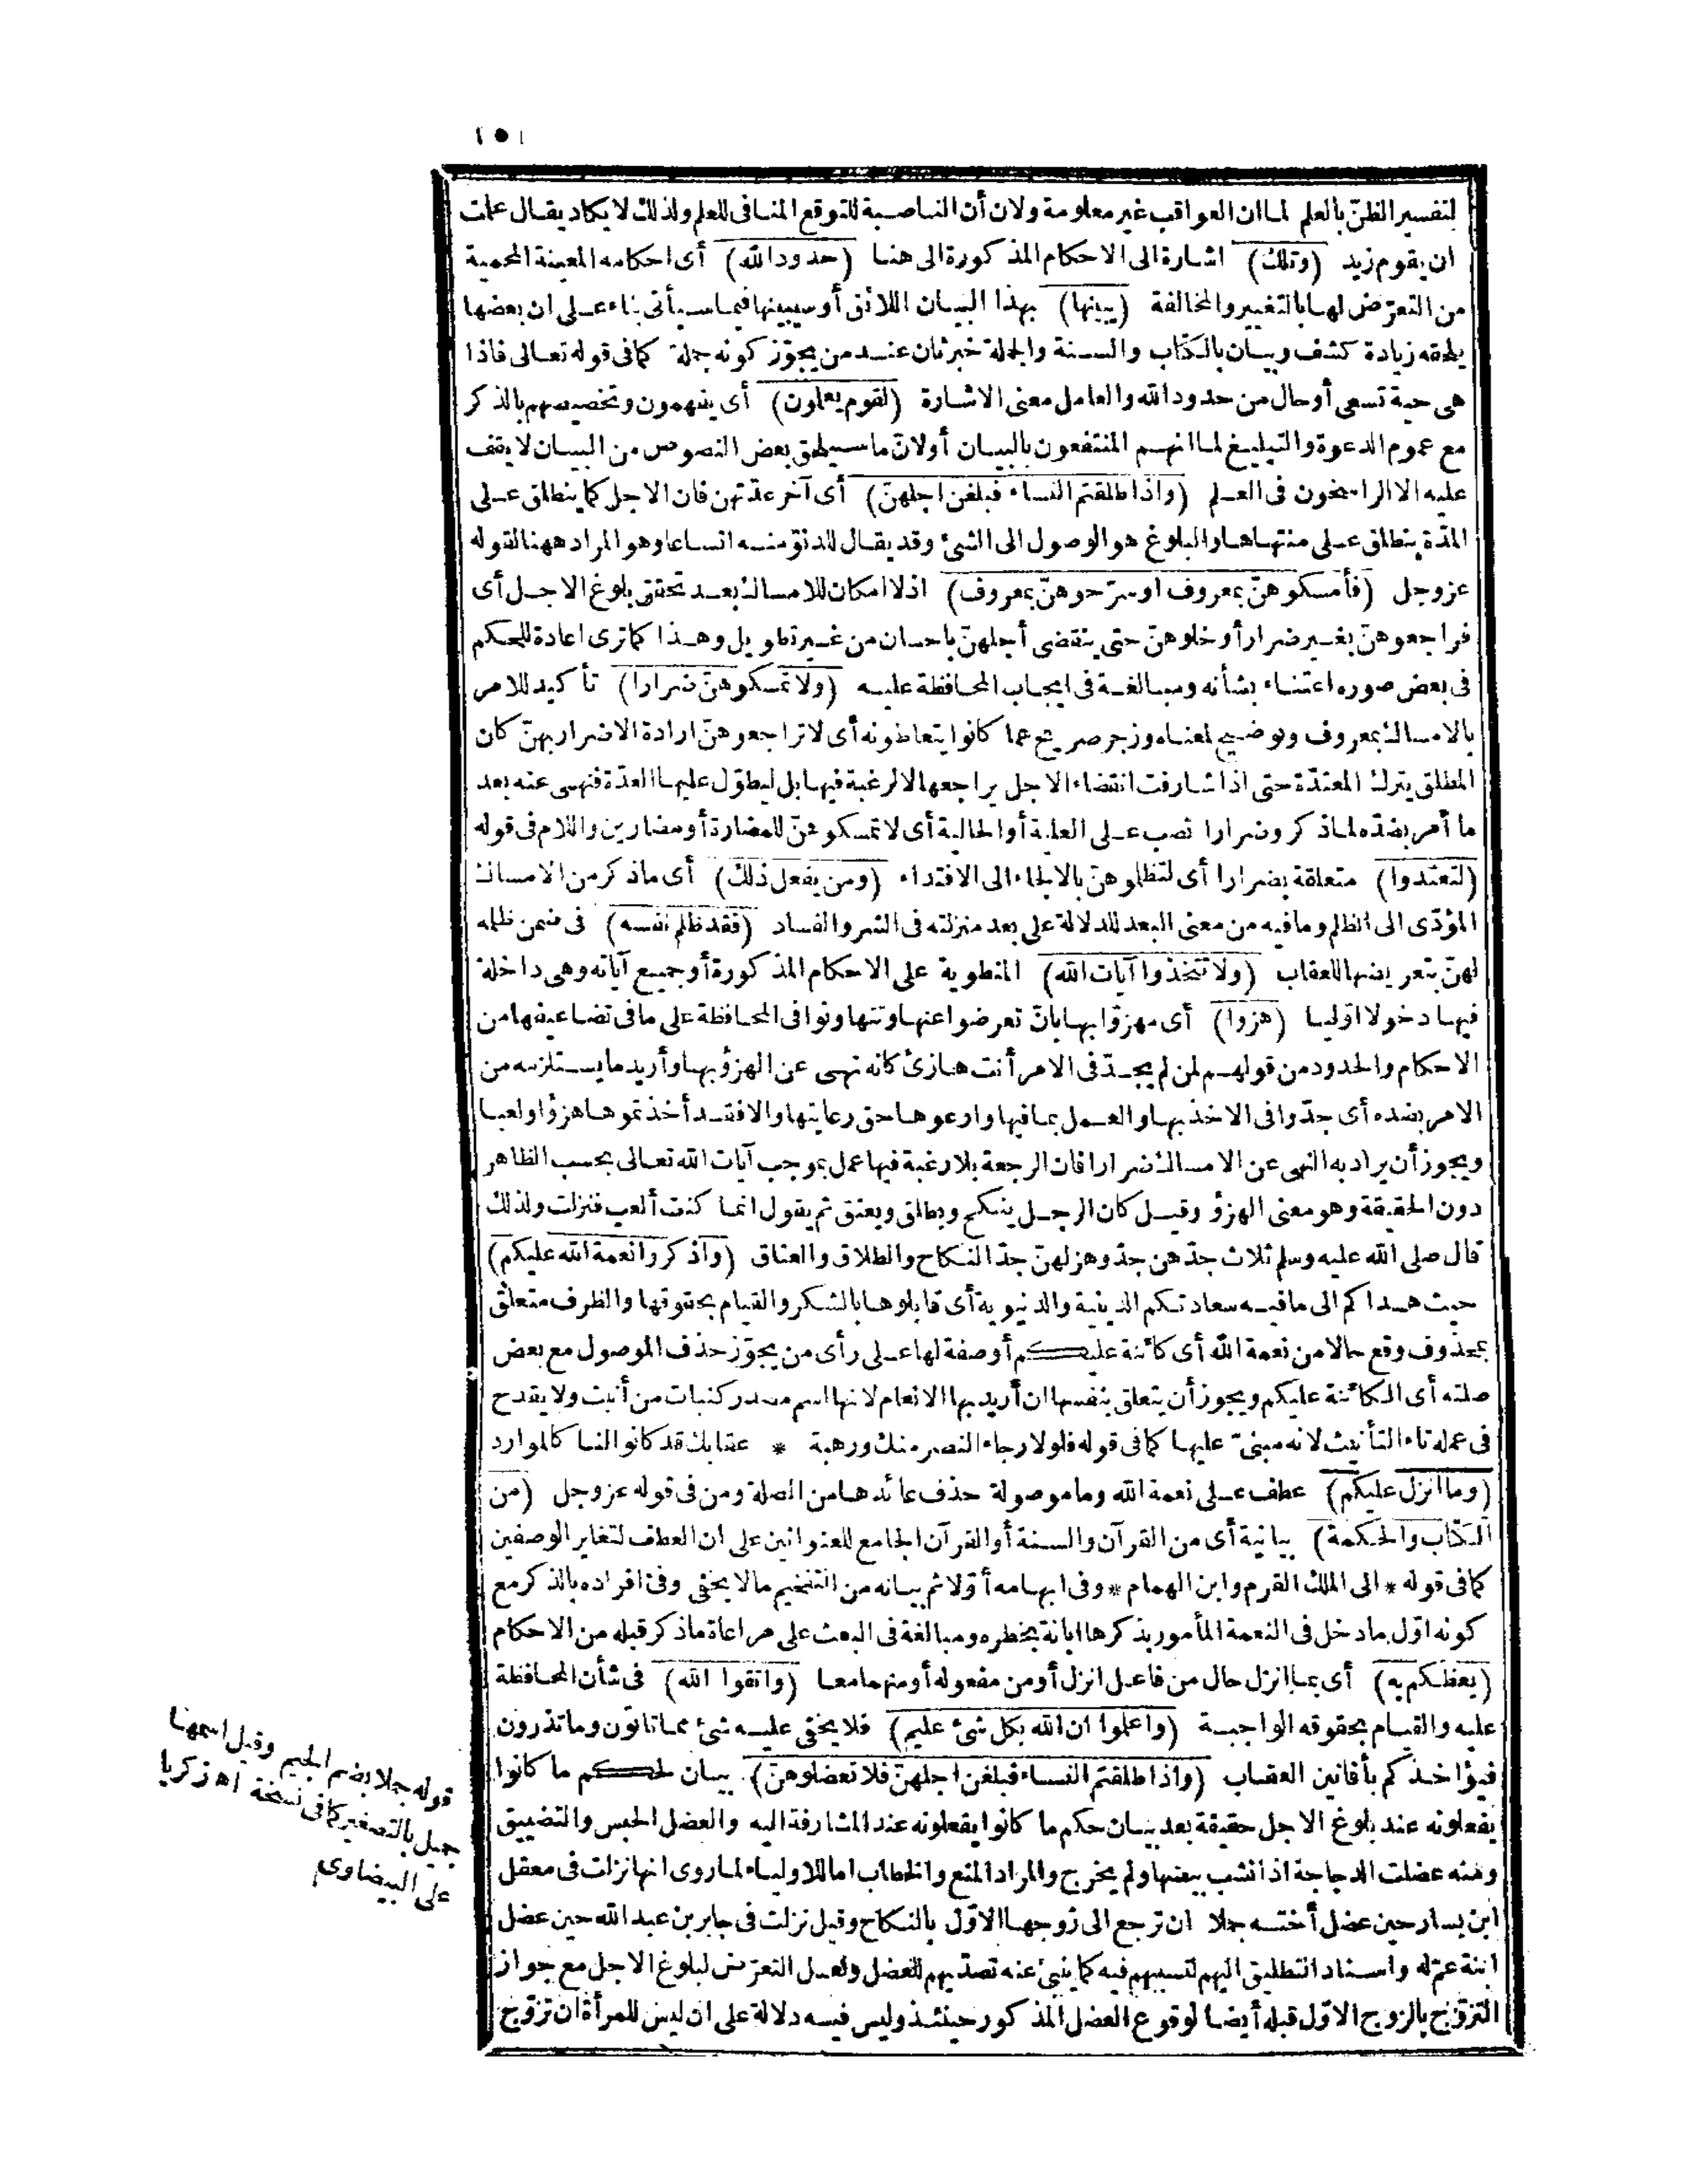 ١٥١
لتفسير الظنّ بالعلم لما ان العواقب غير معلومة ولان أن الناصبة للتوقع المنافى للعلم ولذلك لا يكاد يقال علمت
ان يقوم زيد (وتلك) اشارة الى الاحكام المذكورة الى هنا (حدود الله) أى احكامه المعينة المحمية
من التعرّض لها بالتغيير والمخالفة (يبينها) بهذا البيان اللائق أو سيبينها فيما سيأتى بناء على ان بعضها
يلحقه زيادة كشف وبيان بالكتاب والسنة والجملة خبر ثان عند من يجوّز كونه جملة كما فى قوله تعالى فاذا
هى حية تسعى أو حال من حدود الله والعامل معنى الاشارة (لقوم يعلمون) أى يفهمون وتخصيصهم بالذكر
مع عموم الدعوة والتبليغ لما انهم المنتفعون بالبيان أو لانّ ما سيلحق بعض النصوص من البيان لا يقف
عليه الا الراسخون فى العلم (واذا طلقتم النساء فبلغن اجلهنّ) أى آخر عدّتهن فان الاجل كما ينطلق على
المدّة ينطلق على منتهاها والبلوغ هو الوصول الى الشئ وقد يقال للدنوّ منه اتساعا وهو المراد ههنا لقوله
عز وجل (فأمسكوهنّ بمعروف او سرّحوهنّ بمعروف) اذ لا امكان للامساك بعد تحقق بلوغ الاجل أى
فراجعوهنّ بغير ضرار أو خلوهنّ حتى ينقضى أجلهنّ باحسان من غير تطويل وهذا كما ترى اعادة للحكم
فى بعض صوره اعتناء بشأنه ومبالغة فى ايجاب المحافظة عليه (ولا تمسكوهنّ ضرارا) تأكيد للامر
بالامساك بمعروف وتوضيح لمعناه وزجر صريح عما كانوا يتعاطونه أى لا تراجعوهنّ ارادة الاضرار بهنّ كان
المطلق يترك المعتدّة حتى اذا شارفت انقضاء الاجل يراجعها لا لرغبة فيها بل ليطوّل عليها العدّة فنهى عنه بعد
ما أمر بضدّه لما ذكر وضرارا نصب على العلية أو الحالية أى لا تمسكوهنّ للمضارة أو مضارين واللام فى قوله
(لتعتدوا) متعلقة بضرارا أى لتظلموهنّ بالالجاء الى الافتداء (ومن يفعل ذلك) أى ما ذكر من الامساك
المؤدّى الى الظلم وما فيه من معنى البعد للدلالة على بعد منزلته فى الشر والفساد (فقد ظلم نفسه) فى ضمن ظلمه
لهنّ بتعريضها للعقاب (ولا تتخذوا آيات الله) المنطوية على الاحكام المذكورة أو جميع آياته وهى داخلة
فيها دخولا اوّليا (هزوا) أى مهزوّا بها بانّ تعرضوا عنها وتتهاونوا فى المحافظة على ما فى تضاعيفها من
الاحكام والحدود من قولهم لمن لم يجدّ فى الامر أنت هازئ كانه نهى عن الهزؤ بها وأريد ما يستلزمه من
الامر بضده أى جدّوا فى الاخذ بها والعمل بما فيها وارعوها حق رعايتها والا فقد أخذتموها هزؤا ولعبا
ويجوز أن يراد به النهى عن الامساك ضرارا فان الرجعة بلا رغبة فيها عمل بموجب آيات الله تعالى بحسب الظاهر
دون الحقيقة وهو معنى الهزؤ وقيل كان الرجل ينكح ويطلق ويعتق ثم يقول انما كنت ألعب فنزلت ولذلك
قال صلى الله عليه وسلم ثلاث جدّهن جدّ وهزلهنّ جدّ النكاح والطلاق والعتاق (واذكروا نعمة الله عليكم)
حيث هداكم الى ما فيه سعادتكم الدينية والدنيوية أى قابلوها بالشكر والقيام بحقوقها والظرف متعلق
بمحذوف وقع حالا من نعمة الله أى كائنة عليكم أو صفة لها على رأى من يجوّز حذف الموصول مع بعض
صلته أى الكائنة عليكم ويجوز أن يتعلق بنفسها ان أريد بها الانعام لانها اسم مصدر كنبات من أنبت ولا يقدح
فى عمله تاء التأنيث لانه مبنىّ عليها كما فى قوله فلولا رجاء النصر منك ورهبة * عقابك قد كانوا لنا كالموارد
(وما انزل عليكم) عطف على نعمة الله وما موصولة حذف عائدها من الصلة ومن فى قوله عز وجل (من
الكتاب والحكمة) بيانية أى من القرآن والسنة أو القرآن الجامع للعنوانين على ان العطف لتغاير الوصفين
كما فى قوله * الى الملك القرم وابن الهمام * وفى ابهامه أوّلا ثم بيانه من التفخيم ما لا يخفى وفى افراده بالذكر مع
كونه اوّل ما دخل فى النعمة المأمور بذكرها ابانة بخطره ومبالغة فى البعث على مراعاة ما ذكر قبله من الاحكام
(يعظكم به) أى بما انزل حال من فاعل انزل أو من مفعوله أو منهما معا (واتقوا الله) فى شأن المحافظة
عليه والقيام بحقوقه الواجبة (واعلموا ان الله بكل شئ عليم) فلا يخفى عليه شئ مما تأتون وما تذرون
فيؤاخذكم بأفانين العقاب (واذا طلقتم النساء فبلغن اجلهنّ فلا تعضلوهنّ) بيان لحكم ما كانوا
يفعلونه عند بلوغ الاجل حقيقة بعد بيان حكم ما كانوا يفعلونه عند المشارفة اليه والعضل الحبس والتضييق
ومنه عضلت الدجاجة اذا نشب بيضها ولم يخرج والمراد المنع والخطاب اما للاولياء لما روى انها نزلت فى معقل
ابن يسار حين عضل أخته جملا ان ترجع الى زوجها الاوّل بالنكاح وقيل نزلت فى جابر بن عبد الله حين عضل
ابنة عمّ له واسناد التطليق اليهم لتسببهم فيه كما ينبئ عنه تصدّيهم للعضل ولعل التعرّض لبلوغ الاجل مع جواز
التزوّج بالزوج الاوّل قبله أيضا لوقوع العضل المذكور حينئذ وليس فيه دلالة على ان ليس للمرأة ان تزوّج
قوله جملا بضم الجيم وقيل اسمها
جميل بالتصغير كما فى نسخة اه زكريا
على البيضاوى